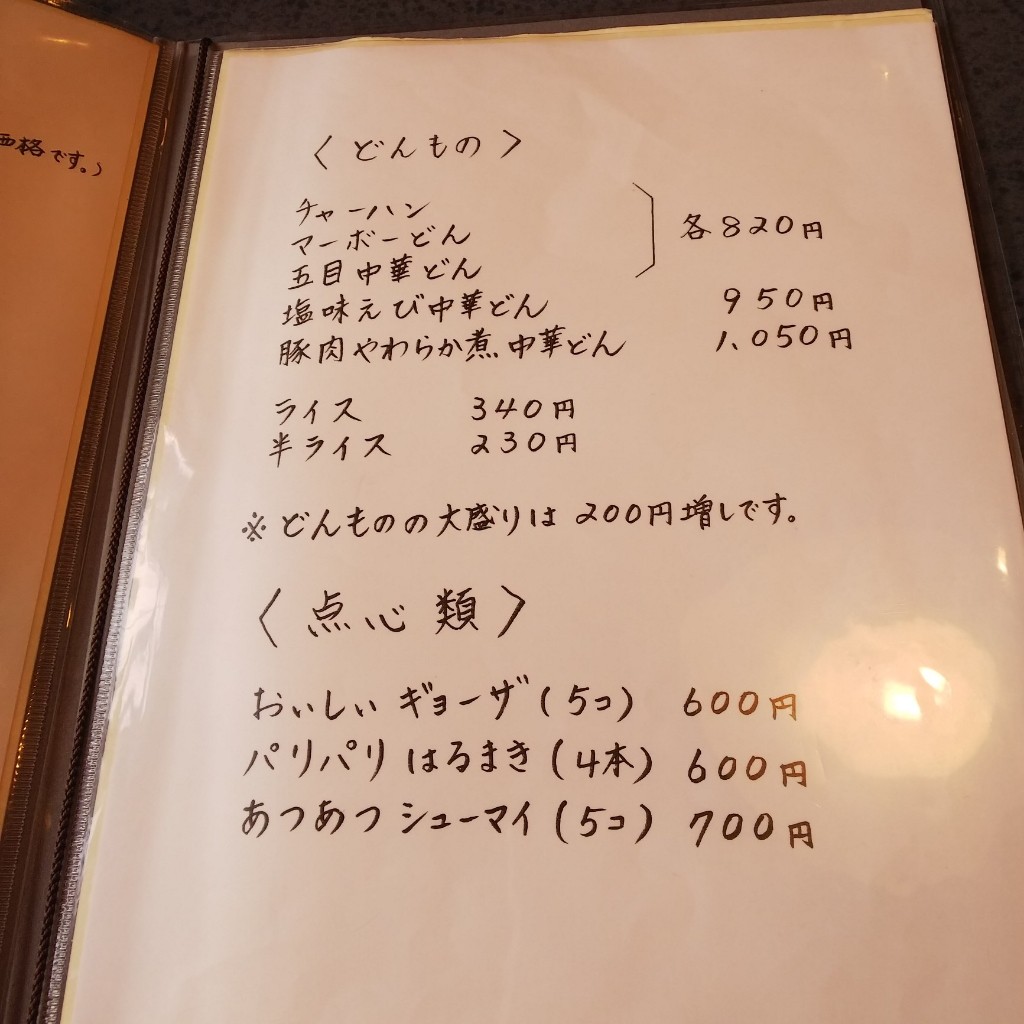 格です。)
〈 どんもの 〉
チャーハン
マーボーどん
五目中華どん
各820円
塩味えび中華どん 950円
豚肉やわらか煮中華どん 1,050円
ライス 340円
半ライス 230円
※どんものの大盛りは 200円増しです。
〈 点心類 〉
おいしい ギョーザ (5コ) 600円
パリパリ はるまき (4本) 600円
あつあつ シューマイ (5コ) 700円